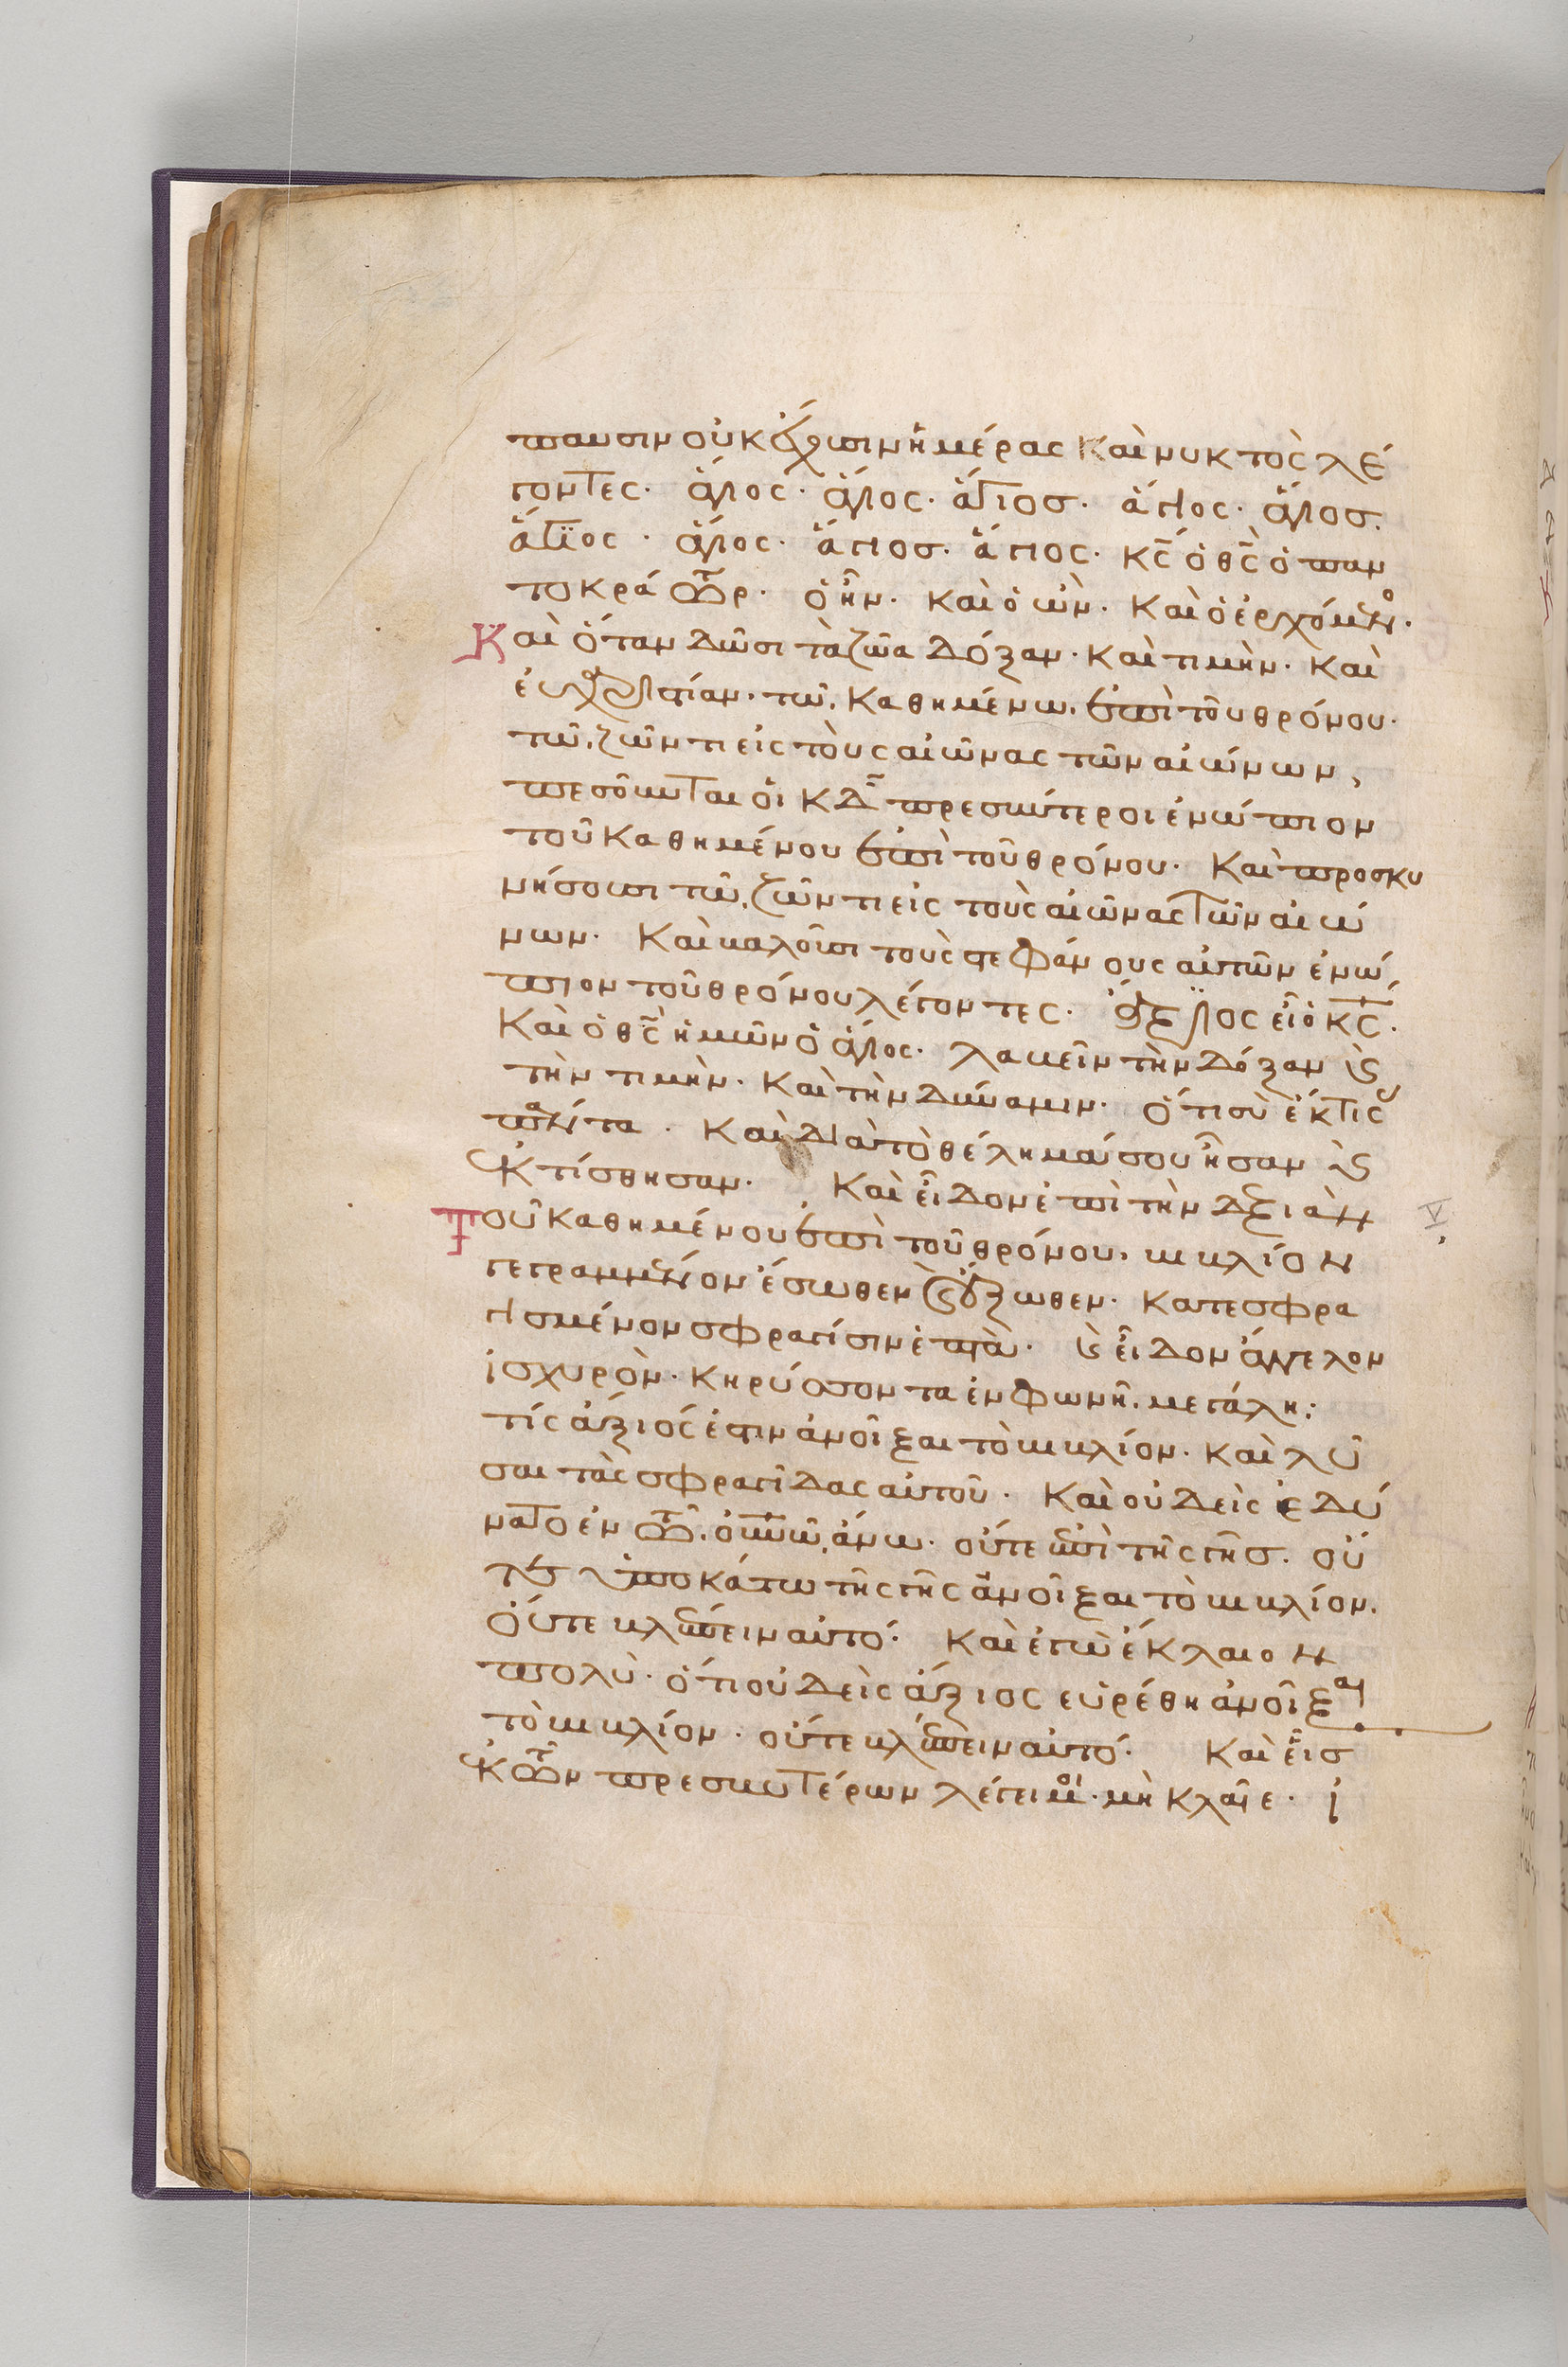 παυσιν οὐκ ἔχουσιν ἡμέρας καὶ νυκτὸς λέ
γοντες· ἅγιος· ἅγιος· ἅγιοσ· ἅγιος· ἅγιοσ.
ἅγϊος · ἅγιος· ἅγιοσ· ἅγιος· κ̅ς̅ ὁ θ̅ς̅ ὁ παν
τοκράτωρ· ὁ ἦν· καὶ ὁ ὢν· καὶ ὁ ἐρχόμενο·
Καὶ ὅταν δῶσι τὰ ζῶα δόξαν· καὶ τιμὴν· καὶ
εὐχαριστίαν· τῶ, καθημένω, ἐπὶ τοῦ θρόνου·
τῶ, ζῶντι εἰς τοὺς αἰῶνας τῶν αἰώνων,
πεσοῦνται οἱ κ̅δ̅ πρεσβύτεροι ἐνώπιον
τοῦ καθημένου ἐπὶ τοῦ θρόνου· καὶ προσκυ
νήσουσι τῶ, ζῶντι εἰς τοὺς αἰῶνας τῶν αἰώ
νων· καὶ βαλοῦσι τοὺς στεφάνους αὐτῶν ἐνώ
πιον τοῦ θρόνου λέγοντες· ἄξιος εἶ ὁ κ̅ς̅.
καὶ ὁ θ̅ς̅ ἡμῶν ὁ ἅγιος· λαβεῖν τὴν δόξαν ϗ
τὴν τιμὴν· καὶ τὴν δύναμιν· ὅτι σὺ ἔκτισ
πάντα · καὶ διὰ τὸ θέλημά σου ἦσαν ϗ
ἐκτίσθησαν· καὶ εἶδον ἐπὶ τὴν δεξιὰν
Τοῦ καθημένου ἐπὶ τοῦ θρόνου, βιβλίον
γεγραμμένον ἔσωθεν ϗ ἔξωθεν· κατεσφρα
γισμένον σφραγίσιν ἑπτὰ· ϗ εἶδον ἄγγελον
ἰσχυρὸν· κηρύσσοντα ἐν φωνῆ, μεγάλη:
τίς ἄξιός ἐστιν ἀνοῖξαι τὸ βιβλίον· καὶ λῦ
σαι τὰς σφραγῖδας αὐτοῦ· καὶ οὐδεὶς ἐδύ
νατο ἐν τῶ, ο̅υ̅ν̅ῶ, ἄνω· οὔτε ἐπὶ τῆς γῆσ· οὔ
τε ὑποκάτω τῆς γῆς ἀνοῖξαι τὸ βιβλίον.
οὔτε βλέπειν αὐτό· καὶ ἐγὼ ἔκλαιον
πολὺ· ὅτι οὐδεὶς ἄξιος εὑρέθη ἀνοῖξαι
τὸ βιβλίον · οὔτε βλέπειν αὐτό· καὶ εἷσ
ἐκ τῶν πρεσβυτέρων λέγει μοι· μὴ κλαῖε· ἰ
V.